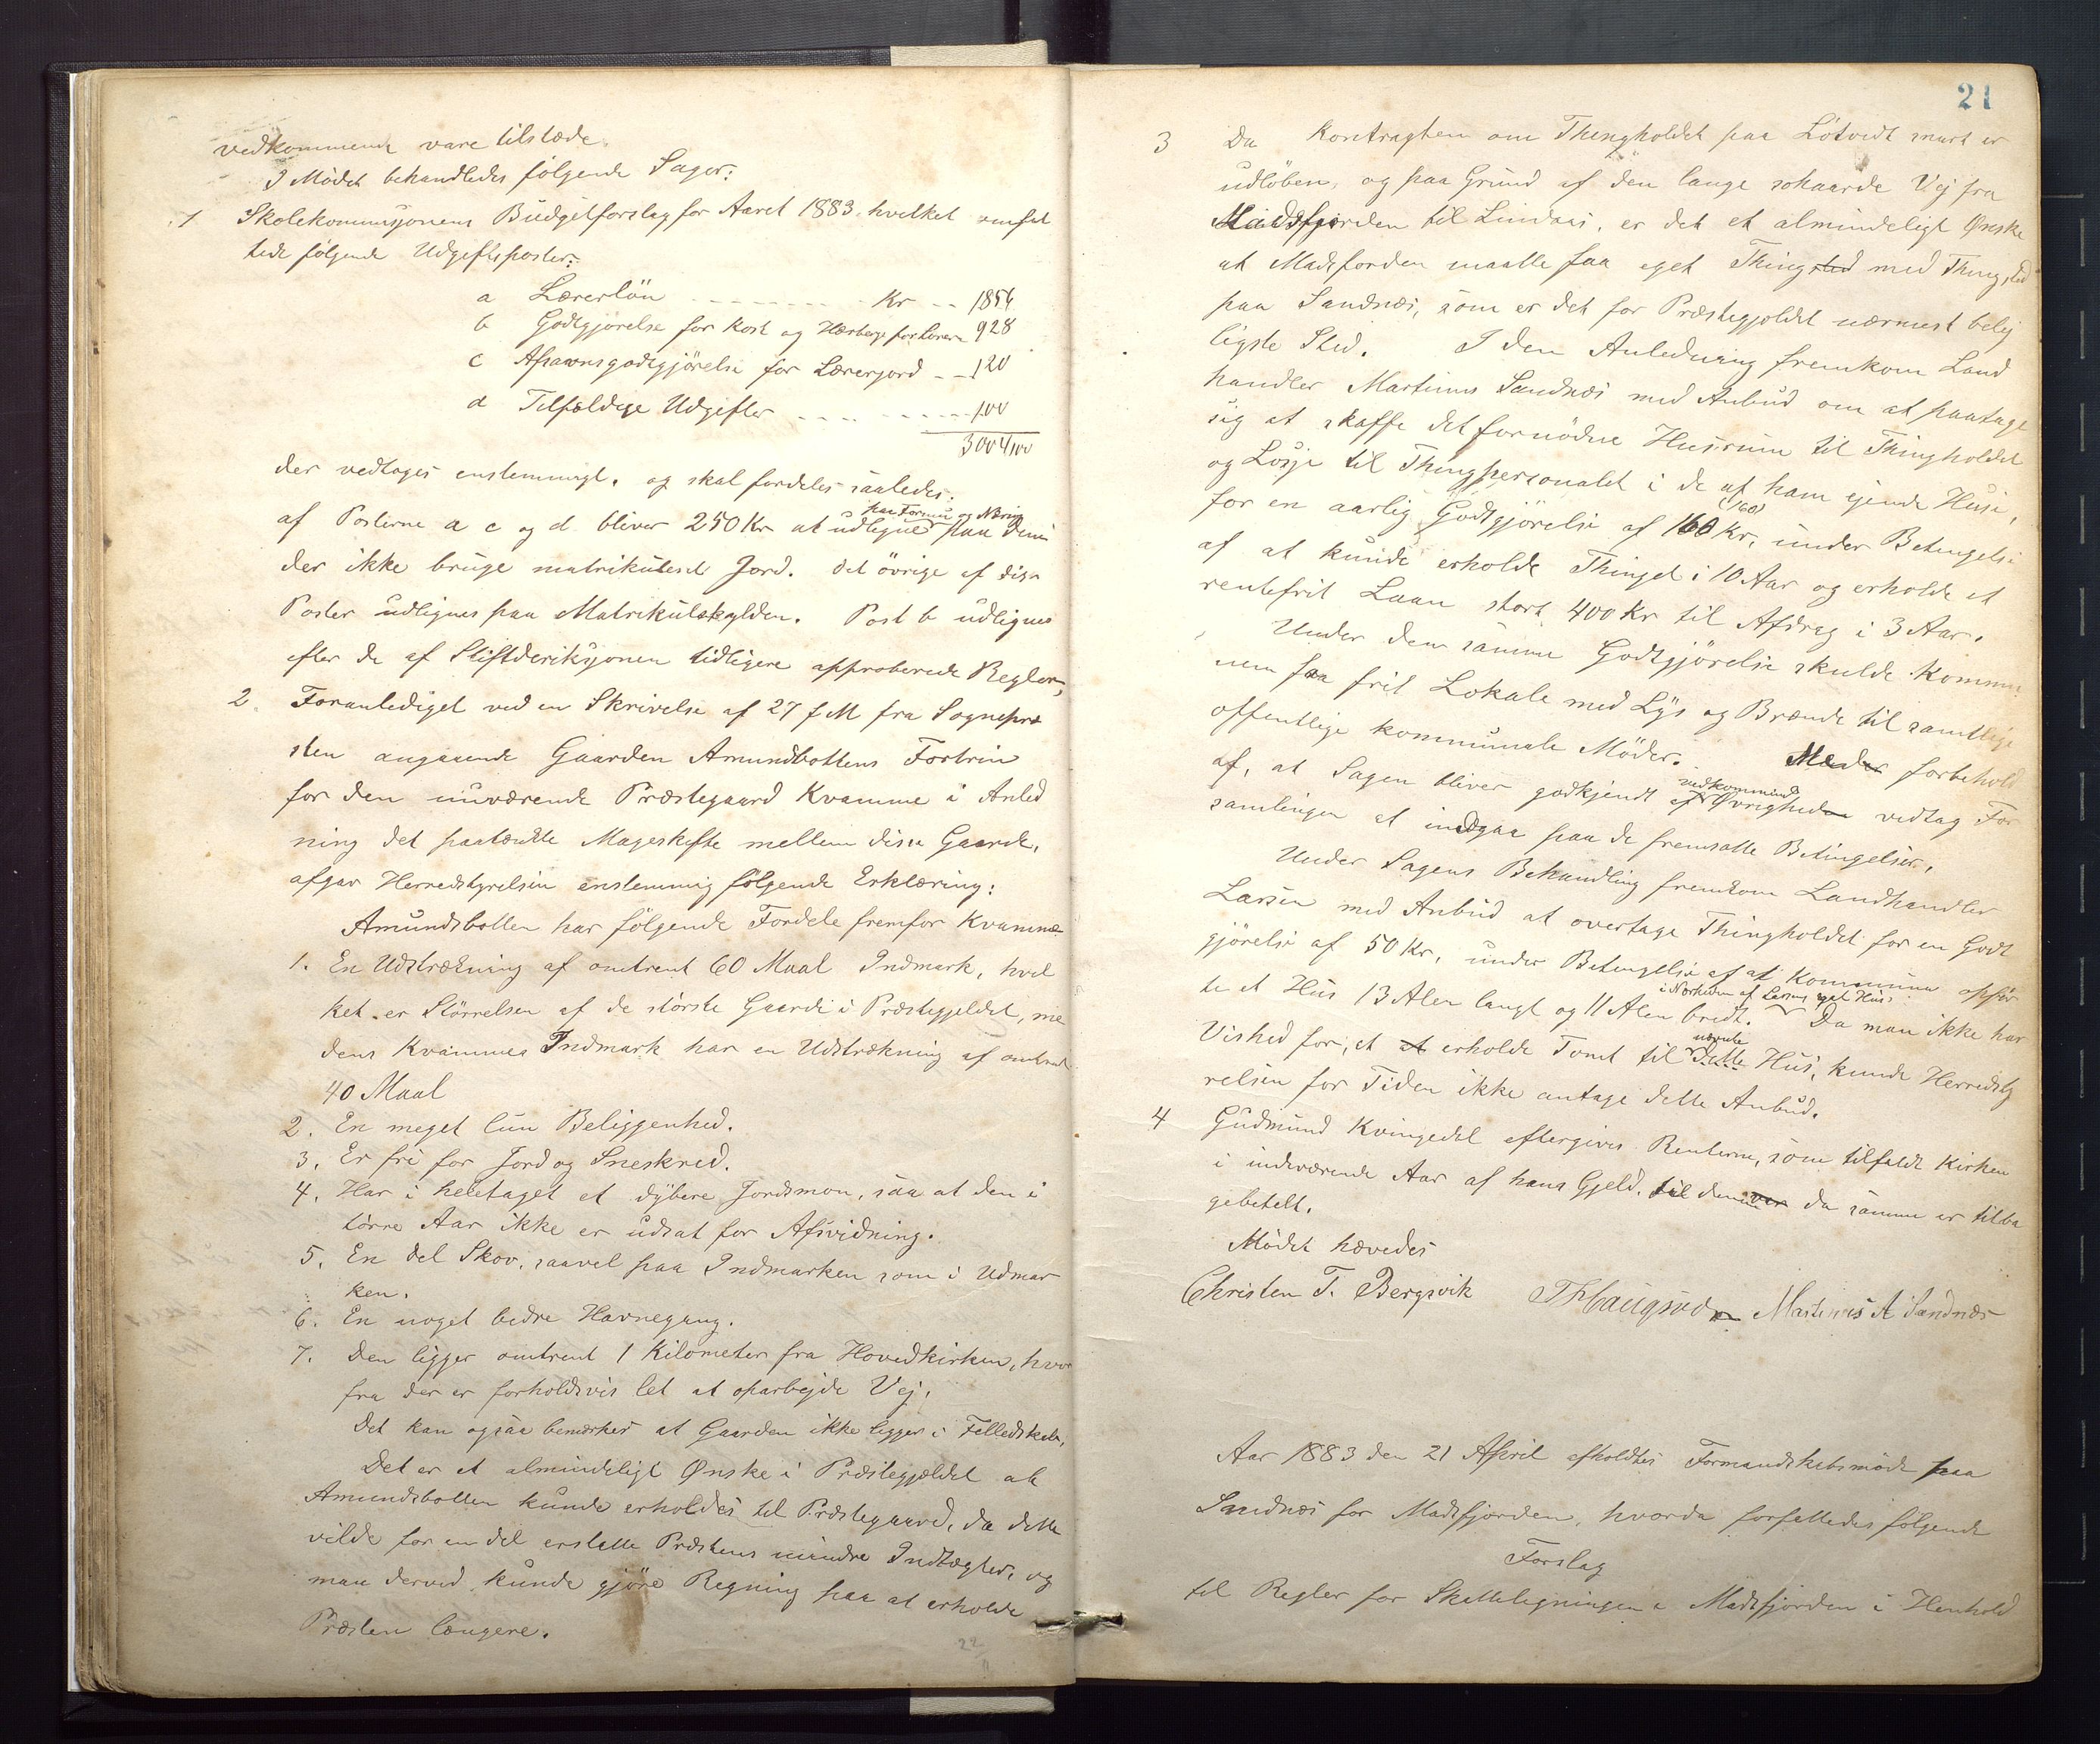 vedkommende vare tilstæde.
I Mödet behandledes fölgende Sager:
1 Skolekommisjonens Büdgetforslag for Aaret 1883. hvilket omfat
tede fölgende Udgiftsposter:
a Lærerlön Kr 1856
b Godtgjörelse for Kost og Herberge for Lærere 928
c Afsavnsgodtgjörelse for Lærerjord 120
d Tilfældige Udgifter 100
3004,00
der vedtages enstemmigt, og skal fordeles saaledes:
af Posterne a c og d bliver 250 Kr at udligne paa Formue og Næring paa dem
der ikke brüge matrikuleret Jord. Det övrige af disse
Poster udlignes paa Matrikulskylden. Post b udlignes
efter de af Stiftderiksjonen tidligere approberede Regler,
2. Foranlediget ved en Skrivelse af 27 f M fra Sognepræ
sten angaaende Gaarden Amundbottens Fortrin
for den nuværende Præstegaard Kvamme i Anled
ning det paatænkte Mageskifte mellem disse Gaarde,
afgav Herredstyrelsen enstemmig fölgende Erklæring:
Amundsbotten har fölgende Fordele fremfor Kvamme
1. En Udstrækning af omtrent 60 Maal Indmark, hvil
ket er Störrelsen af de störste Gaarde i Præstegjeldet, me
dens Kvammes Indmark har en Udstrækning af omtrent
40 Maal
2. En meget lun Beliggenhed.
3. Er fri for Jord og Sneskred.
4. Har i heletaget et dybere Jordsmon, saa at den i
törre Aar ikke er udsat for Afsvidning.
5. En del Skov, saavel paa Indmarken som i Udmar
ken.
6. En noget bedre Havnegang.
7. Den ligger omtrent 1 Kilometer fra Hovedkirken, hvor
fra der er forholdsvis let at oparbejde Vej.
Det kan ogsaa bemærkes at Gaarden ikke ligger i Felledskab,
Det er et almindeligt Ønske i Præstegjældet at
Amundsbotten kunde erholdes til Præstegaard, da dette
vilde for en del erstatte Præstens mindre Indtægter, og
man derved kunde gjöre Regning paa at erholde
Præsten længere.
22
21
3 Da Kontragten om Thingholdet paa Lötvedt snart er
udlöben, og paa Grund af den lange Vej fra
Madsfjorden til Lindaas, er det et almindeligt Ønske
at Madsfjorden maatte faa eget Thingsted med Thingsted
paa Sandnæs, som er det for Præstegjeldet nærmest belej
ligste Sted. I den Anledning fremkom Land
handler Martinus Sandnæs med Anbud om at paatage
sig at skaffe det fornödne Husrum til Thingholdet
og Losje til Thingpersonalet i de af ham ejende Huse,
for en aarlig Godtgjörelse af 160 (160) Kr, under Betingelse
af at kunde erholde Thinget i 10 Aar og erholde et
rentefrit Laan stort 400 Kr til Afdrag i 3 Aar.
Under den samme Godtgjörelse skulde Kommu
nen faa frit Lokale med Lys og Brænde til samtlige
offentlige kommunale Möder. Med forbehold
af, at Sagen bliver godkjendt af vedkommende Øvrighed vedtog For
samlingen at indgaa paa de fremsatte Betingelser.
Under Sagens Behandling fremkom Landhandler
Larsen med Anbud at overtage Thingholdet for en Godt
gjörelse af 50 Kr, under Betingelse af at Kommunen opför
te et Hus 13 Alen langt og 11 Alen bredt. i Nærheden af Larsens eget Hus. Da man ikke har
Vished for, at at erholde Tomt til nævnte Dette Hus, kunde Herredsty
relsen for Tiden ikke antage dette Anbud.
4 Gudmund Kvingedal eftergives Renterne, som tilfaldt Kirken
i indeværende Aar af hans Gjeld. da samme er tilba
gebetelt.
Mödet hævedes
Christen T. Bergsvik Martinus A Sandnæs
Aar 1883 den 21 April afholdtes Formandskabsmöde paa
Sandnæs for Madsfjorden, hvorda forfattedes fölgende
Forslag
til Regler for Skatteligningen i Madsfjorden i Henhold